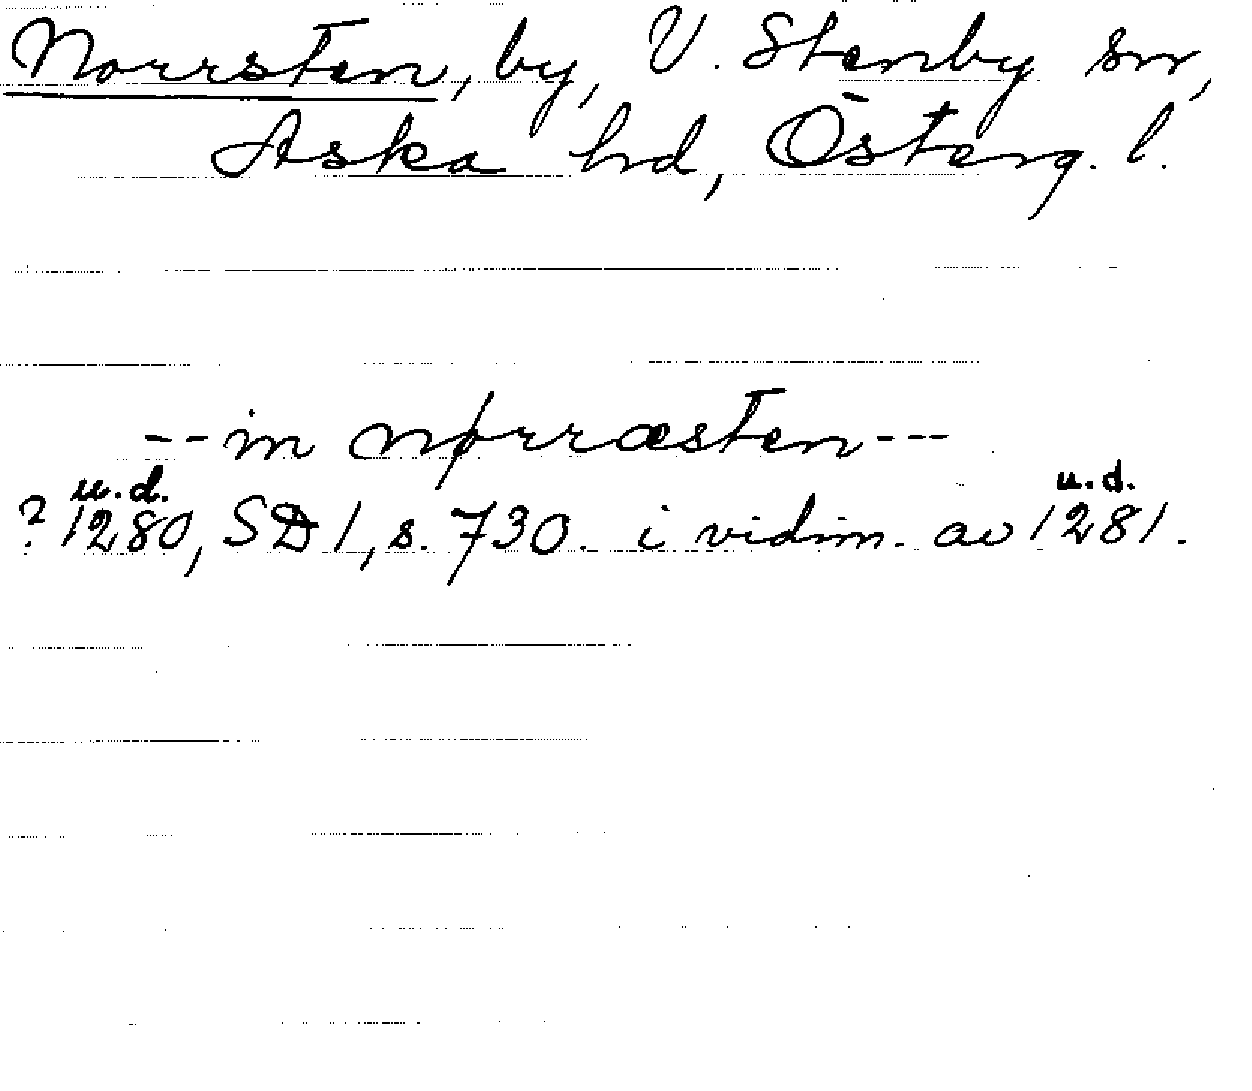 Norrsten, by, V. Stenby sn,
Aska hd, Österg. l.
--in nørræsten---
u.d. u.d.
? 1280, SD 1, s. 730. i vidim. av 1281.